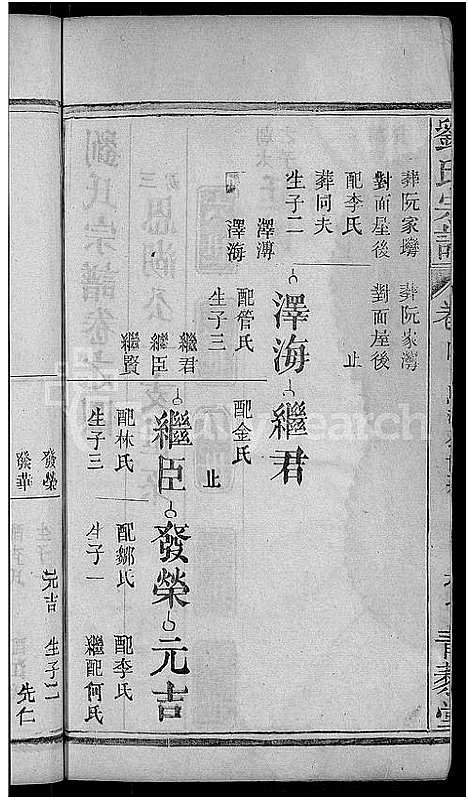 劉氏宗譜
卷
青藜堂
葬阮家塆
對面屋後
葬阮家灣
對面屋後
止
配李氏
葬同夫
生子二
澤溥
澤海
澤海
繼君
配管氏
生子三
繼君
繼臣
繼賢
配金氏
止
繼臣
發榮
元吉
配林氏
生子三
配鄒氏
生子一
配李氏
繼配何氏
發榮
發華
元吉
生子二
先仁